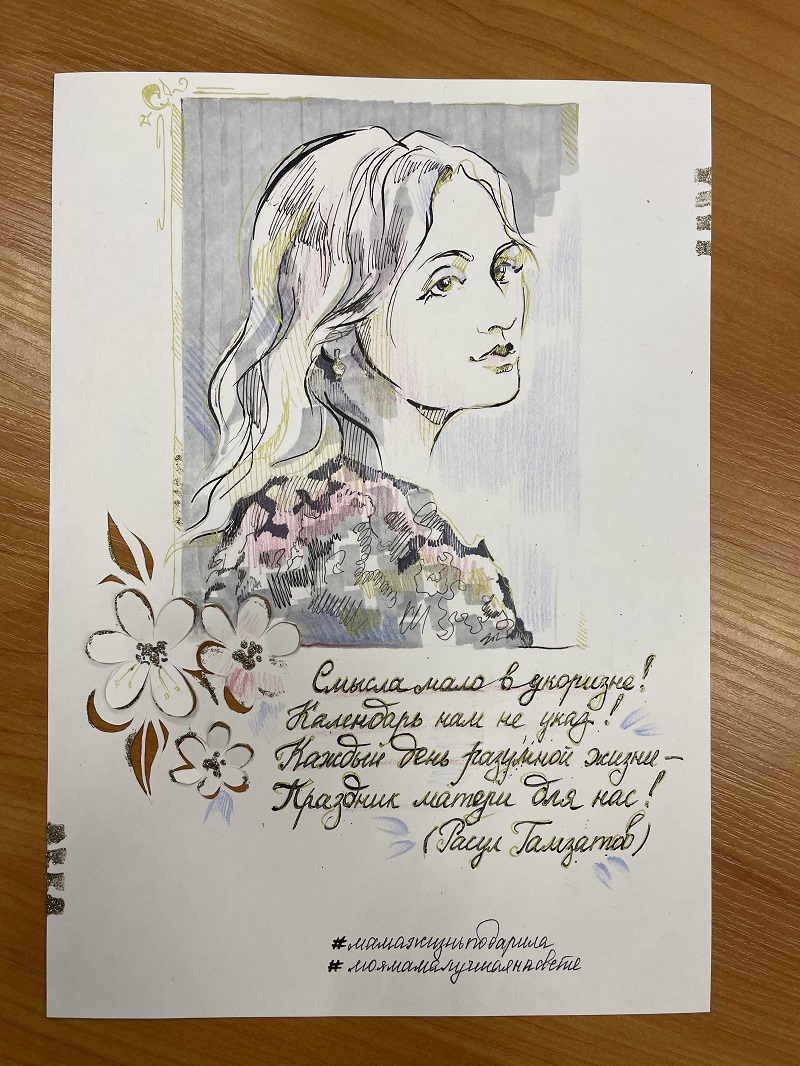 Смысла мало в укоризне!
Календарь нам не указ!
Каждый день разумной жизни —
Праздник матери для нас!
(Расул Гамзатов)
#мамажизньподарила
#моямамалучшаянасвете